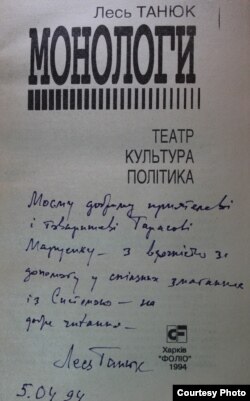 Лесь ТАНЮК
МОНОЛОГИ
ТЕАТР
КУЛЬТУРА
ПОЛІТИКА
Моєму доброму приятелеві
і товаришеві Тарасові
Марусику – з вдячністю за
допомогу у спільних змаганнях
із Системою – на
добре читання –
Лесь Танюк
Харків
"ФОЛІО"
1994
5.04.94
Courtesy Photo